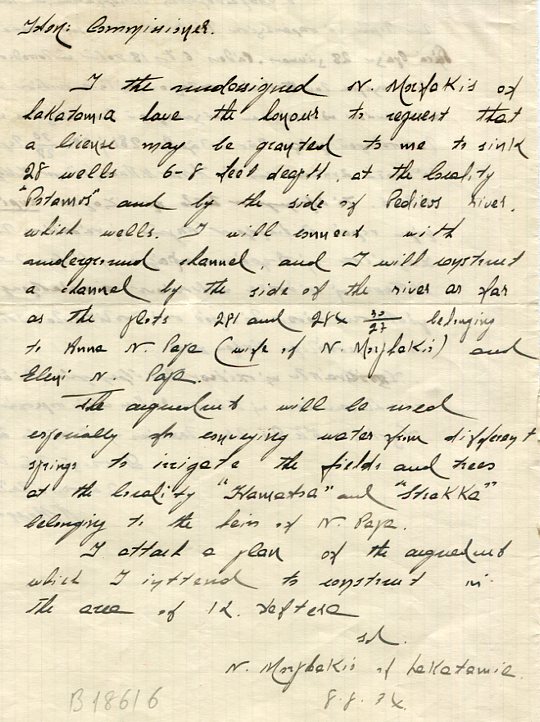 Hon: Commissioner.
I the undersigned N. Morfakis of
Lakatamia have the honour to request that
a license may be granted to me to sink
28 wells 6-8 feet depth, at the locality
"Potamos" and by the side of Pedieos river.
which wells. I will connect with
underground channel, and I will construct
a channel by the side of the river as far
as the plots 281 and 284 30/27 belonging
to Anna N. Papa (wife of N. Morfakis) and
Eleni N. Papa.
The aqueduct will be used
especially for conveying water from different
springs to irrigate the fields and trees
at the locality "Kamatra" and "Strakka"
belonging to the heirs of N. Papa.
I attach a plan of the aqueduct
which I inttend to construct in
the area of 12. Deftera
sd.
N. Morfakis of Lakatamia.
8.8.34
B18616